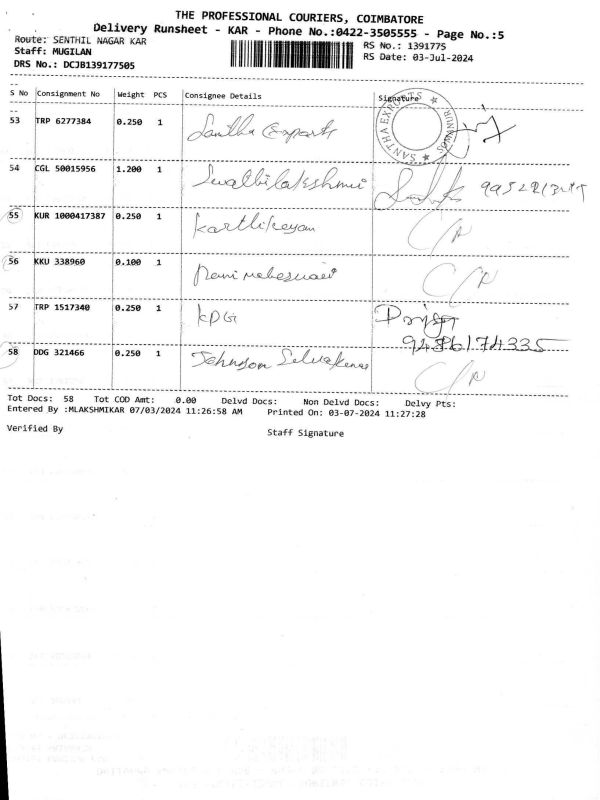 THE PROFESSIONAL COURIERS, COIMBATORE
Delivery Runsheet - KAR - Phone No.:0422-3505555 - Page No.:5
Route: SENTHIL NAGAR KAR
RS No.: 1391775
Staff: MUGILAN
RS Date: 03-Jul-2024
DRS No.: DCJB139177505
S No Consignment No Weight PCS Consignee Details Signature
53 TRP 6277384 0.250 1 Santha Exports
SANTHA EXPORTS
54 CGL 50015956 1.200 1
55 KUR 1000417387 0.250 1 Karthikeyan
56 KKU 338960 0.100 1
57 TRP 1517340 0.250 1 KPG
9486174335
58 DDG 321466 0.250 1 Johnson
Tot Docs: 58 Tot COD Amt: 0.00 Delvd Docs: Non Delvd Docs: Delvy Pts:
Entered By :MLAKSHMIKAR 07/03/2024 11:26:58 AM Printed On: 03-07-2024 11:27:28
Verified By Staff Signature